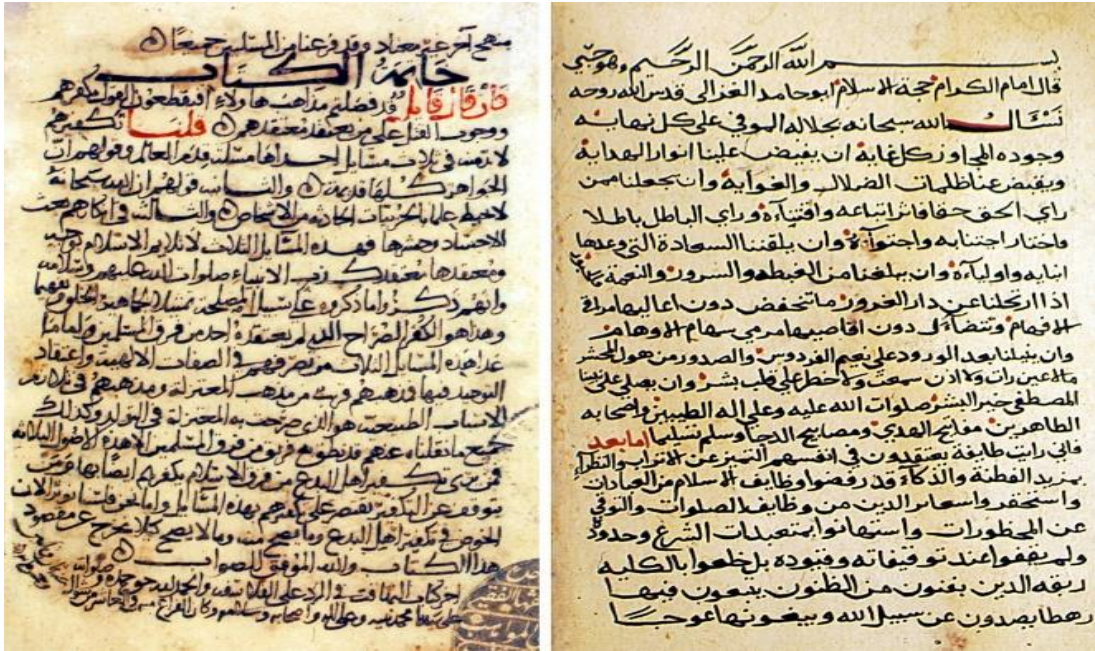 بسم الله الرحمن الرحيم وهو حسبي
قال امام الكرام حجة الاسلام ابو حامد الغزالي قدس الله روحه
نسال الله سبحانه بجلاله الموفي على كل نهاية
وجوده المجاوز كل غاية ان يفيض علينا انوار الهداية
ويقبض عنا ظلمات الضلال والغواية وان يجعلنا ممن
راى الحق حقا فاثر اتباعه واقتفاءه وراى الباطل باطلا
فاختار اجتنابه واجتواءه وان يلقننا السعادة التي وعد بها
انبيائه واولياءه وان يبلغنا من الغبطة والسرور والنعمة
اذا ارتحلنا عن دار الغرور ما تنخفض دون اعاليها مراقي
الافهام وتتضاءل دون اقاصيها مرمي سهام الاوهام
وان ينيلنا بعد الورود على نعيم الفردوس والصدور من هول المحشر
ما لا عين رات ولا اذن سمعت ولا خطر على قلب بشر وان يصلي على نبينا
المصطفى خير البشر صلوات الله عليه وعلى اله الطيبين واصحابه
الطاهرين مفاتيح الهدى ومصابيح الدجا وسلم تسليما اما بعد
فاني رايت طايفة يعتقدون في انفسهم التميز عن الاتراب والنظراء
بمزيد الفطنة والذكاء قد رفضوا وظايف الاسلام من العبادات
واستحقروا شعائر الدين من وظايف الصلوات والتوقي
عن المحظورات واستهانوا بتعبدات الشرع وحدوده
ولم يقفوا عند توقيفاته وقيوده بل خلعوا بالكلية
ربقة الدين بفنون من الظنون يتبعون فيها
رهطا يصدون عن سبيل الله ويبغونها عوجا
منهج اخر غير معتاد وقد فرغنا من المسئلتين جميعا
خاتمة الكتاب
فان قال قايل قد فصلتم مذاهب هاولاء افتقطعون القول بكفرهم
ووجوب القتل على من يعتقد معتقدهم قلنا تكفيرهم
لا بد منه في ثلاث مسايل احداها مسئلة قدم العالم وقولهم ان
الجواهر كلها قديمة والثانية قولهم ان الله سبحانه
لا يحيط علما بالجزئيات الحادثة من الاشخاص والثالث في انكارهم بعث
الاجساد وحشرها فهذه المسايل الثلاث لا تلايم الاسلام بوجه
ومعتقدها معتقد كذب الانبياء صلوات الله عليهم وسلامه
وانهم ذكروا ما ذكروه على سبيل المصلحة تمثيلا لجماهير الخلق وتفهيما
وهذا هو الكفر الصراح الذي لم يعتقده احد من فرق المسلمين فاما ما
عدا هذه المسايل الثلاث من تصرفهم في الصفات الالهية واعتقاد
التوحيد فيها فمذهبهم قريب من مذهب المعتزلة ومذهبهم في تلازم
الاسباب الطبيعية هو الذي صرحت به المعتزلة في التولد وكذلك
جميع ما نقلناه عنهم قد نطق به فريق من فرق المسلمين الا هذه الاصول الثلاثة
فمن يرى تكفير اهل البدع من فرق الاسلام يكفرهم ايضا بها ومن
يتوقف عن التكفير يقتصر على تكفيرهم بهذه المسايل واما نحن فلسنا نوثر الان
الخوض في تكفير اهل البدع وما يصح منه وما لا يصح كيلا يخرج عن مقصود
هذا الكتاب والله الموفق للصواب
اخر كتاب التهافت في الرد على الفلاسفة والحمد لله حق حمده وصلواته
على سيدنا محمد نبيه وعلى اله واصحابه وسلامه وكان الفراغ منه في